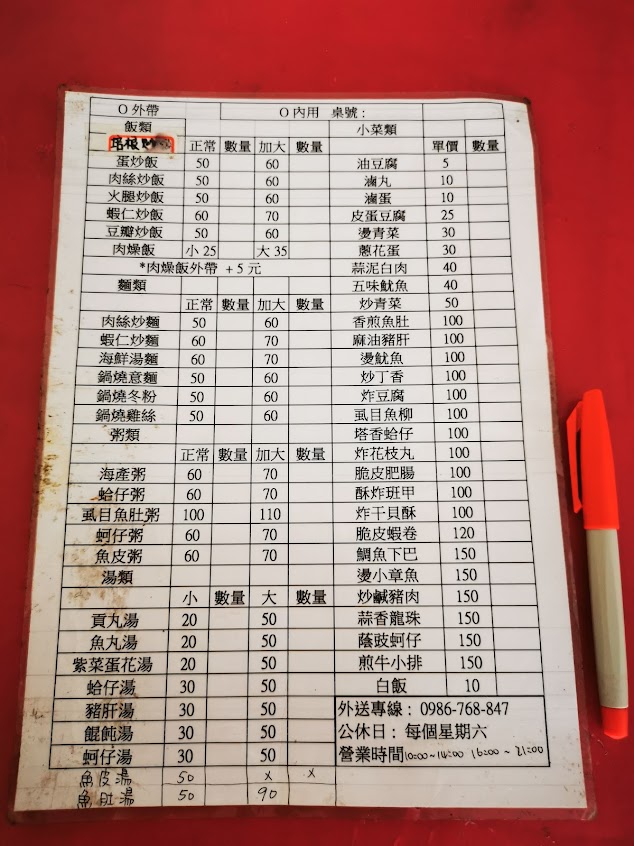 O外帶 O內用 桌號:
飯類 小菜類
培根炒飯 正常 數量 加大 數量 單價 數量
蛋炒飯 50 60 油豆腐 5
肉絲炒飯 50 60 滷丸 10
火腿炒飯 50 60 滷蛋 10
蝦仁炒飯 60 70 皮蛋豆腐 25
豆瓣炒飯 50 60 燙青菜 30
肉燥飯 小25 大35 蔥花蛋 30
*肉燥飯外帶 +5元 蒜泥白肉 40
麵類 五味魷魚 40
正常 數量 加大 數量 炒青菜 50
肉絲炒麵 50 60 香煎魚肚 100
蝦仁炒麵 60 70 麻油豬肝 100
海鮮湯麵 60 70 燙魷魚 100
鍋燒意麵 50 60 炒丁香 100
鍋燒冬粉 50 60 炸豆腐 100
鍋燒雞絲 50 60 虱目魚柳 100
粥類 塔香蛤仔 100
正常 數量 加大 數量 炸花枝丸 100
海產粥 60 70 脆皮肥腸 100
蛤仔粥 60 70 酥炸班甲 100
虱目魚肚粥 100 110 炸干貝酥 100
蚵仔粥 60 70 脆皮蝦卷 120
魚皮粥 60 70 鯛魚下巴 150
湯類 燙小章魚 150
小 數量 大 數量 炒鹹豬肉 150
貢丸湯 20 50 蒜香龍珠 150
魚丸湯 20 50 蔭豉蚵仔 150
紫菜蛋花湯 20 50 煎牛小排 150
蛤仔湯 30 50 白飯 10
豬肝湯 30 50 外送專線: 0986-768-847
餛飩湯 30 50 公休日: 每個星期六
蚵仔湯 30 50 營業時間10:00~14:00 16:00~21:00
魚皮湯 50 x x
魚肚湯 50 90